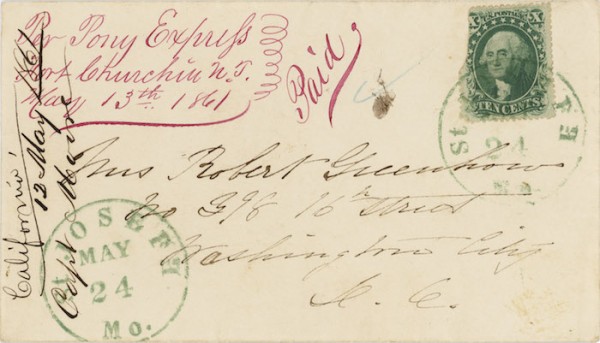 Per Pony Express
Fort Churchill N.T.
May 13th 1861
Paid
California,
12 May /61
Capt
X X
U.S. POSTAGE
TEN CENTS
St
24
Mo.
Mrs Robert Greenhow
No 398 16th street
Washington City
D. C.
St JOSEPH
MAY
24
Mo.